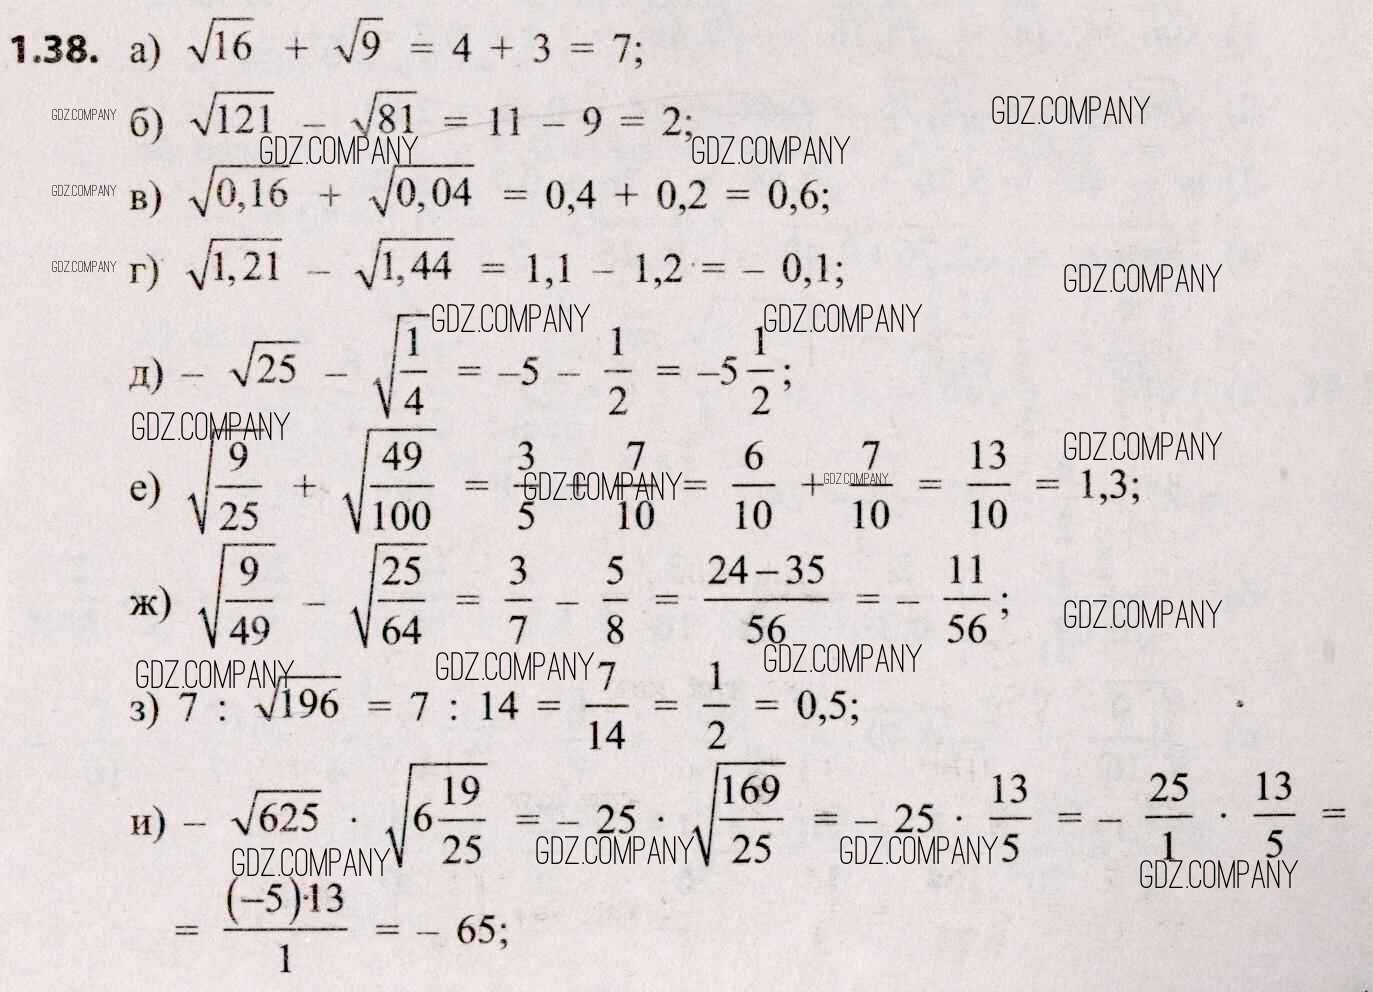 1.38. а) √16 + √9 = 4 + 3 = 7;
GDZ.COMPANY б) √121 – √81 = 11 – 9 = 2; GDZ.COMPANY
GDZ.COMPANY GDZ.COMPANY
GDZ.COMPANY в) √0,16 + √0,04 = 0,4 + 0,2 = 0,6;
GDZ.COMPANY г) √1,21 – √1,44 = 1,1 – 1,2 = – 0,1; GDZ.COMPANY
GDZ.COMPANY GDZ.COMPANY
д) – √25 – √(1/4) = –5 – 1/2 = –5 1/2;
GDZ.COMPANY GDZ.COMPANY
е) √(9/25) + √(49/100) = 3/5 + 7/10 = 6/10 + 7/10 = 13/10 = 1,3;
GDZ.COMPANY GDZ.COMPANY
ж) √(9/49) – √(25/64) = 3/7 – 5/8 = (24–35)/56 = – 11/56; GDZ.COMPANY
GDZ.COMPANY GDZ.COMPANY GDZ.COMPANY
з) 7 : √196 = 7 : 14 = 7/14 = 1/2 = 0,5;
и) – √625 · √(6 19/25) = – 25 · √(169/25) = – 25 · 13/5 = – 25/1 · 13/5 =
GDZ.COMPANY GDZ.COMPANY GDZ.COMPANY GDZ.COMPANY
= (–5)·13/1 = – 65;